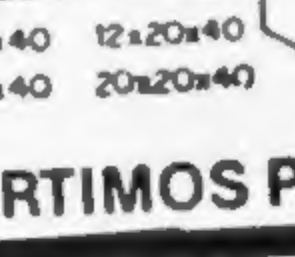 x40 12x20x40
x40 20x20x40
RTIMOS P